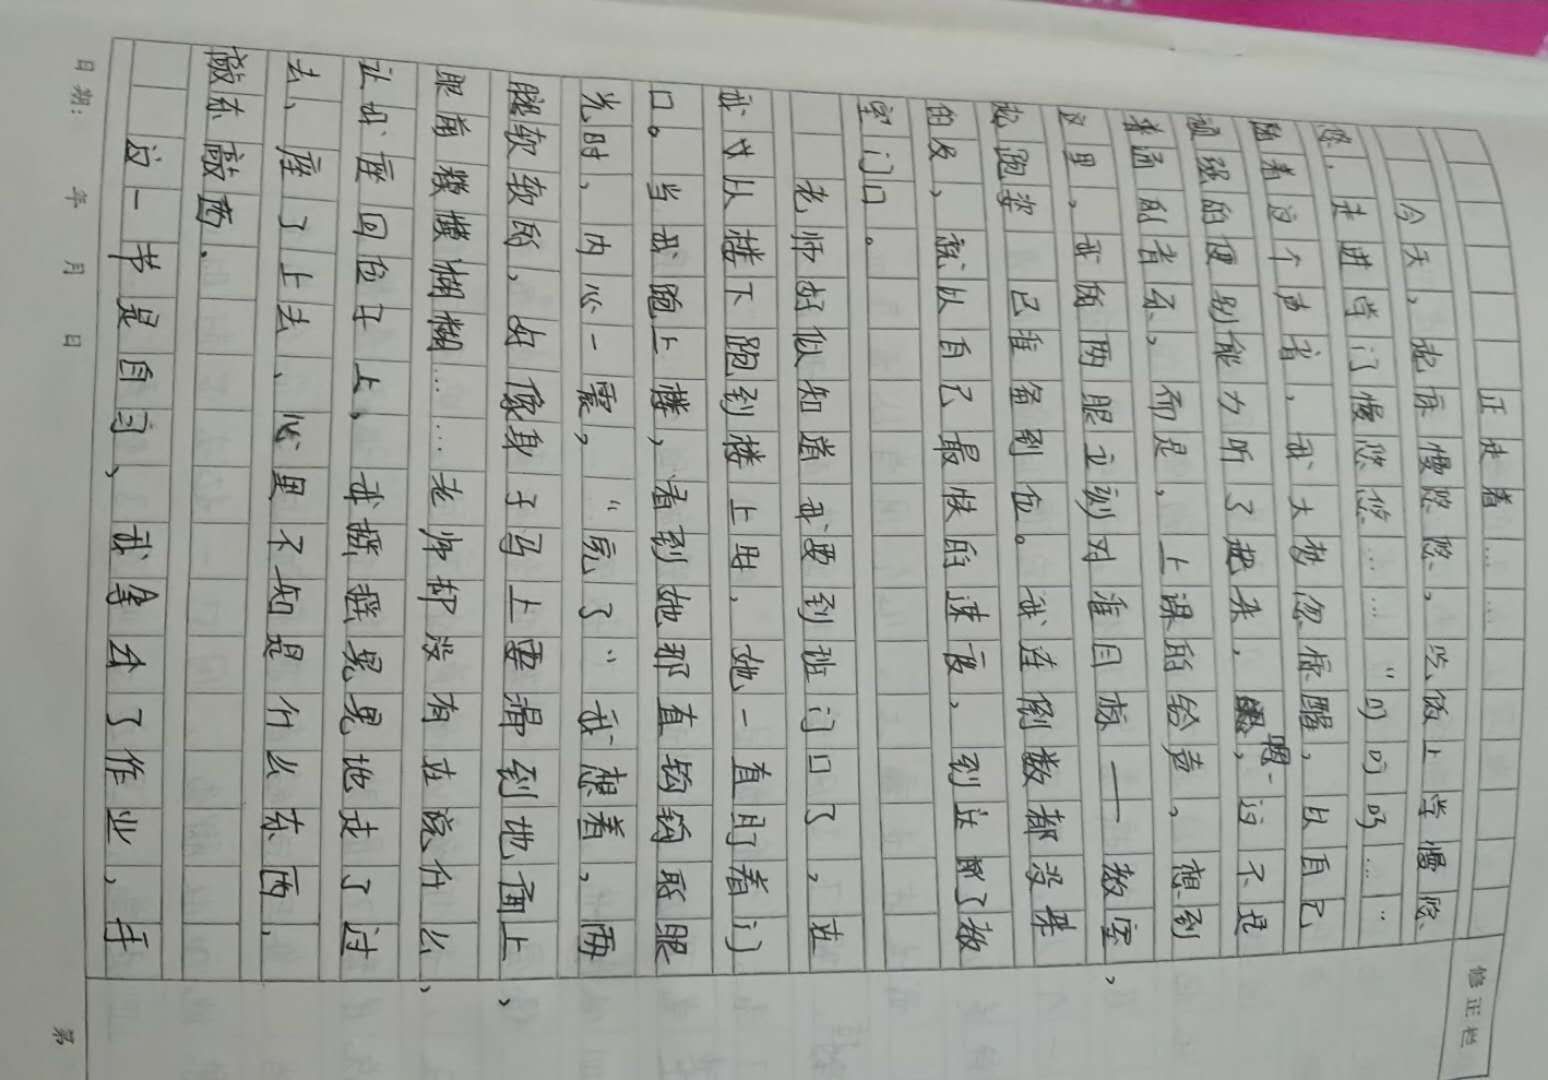 正走着……
今天，起床慢悠悠，吃饭上学慢悠
悠，走进学门慢悠悠……“叮叮叮…”
随着这个声音，我大梦忽惊醒，以自己
顽强的便别能力听了起来，嗯，这不是
普通的音乐，而是，上课的铃声。想到
这里，我的两眼立刻对准目标——教室，
起跑姿 已准备到位。我连倒数都没带
的及，就以自己最快的速度，到达了教
室门口。
老师好似知道我要到班门口了，过
我才从楼下跑到楼上时，她一直盯着门
口。当我跑上楼，看到她那直钩钩的眼
光时，内心一震，“完了”我想着，两
腿软软的，好像身子马上要滑到地面上，
眼前模模糊糊……老师却没有在说什么，
让我座回位子上，我摇摇晃晃地走了过
去，座了上去，心里不知是什么东西，
敲东敲西。
这一节是自习，我拿出了作业，手
日期： 年 月 日
修正栏
第